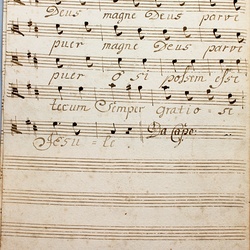 Deus magne Deus parve
puer magne Deus parve
puer o si possem esse
tecum Semper gratio - se
Jesu - le Da Capo